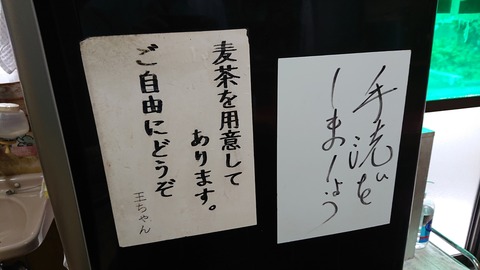 麦茶を用意して
あります。
ご自由にどうぞ
王ちゃん
手洗いを
しましょう